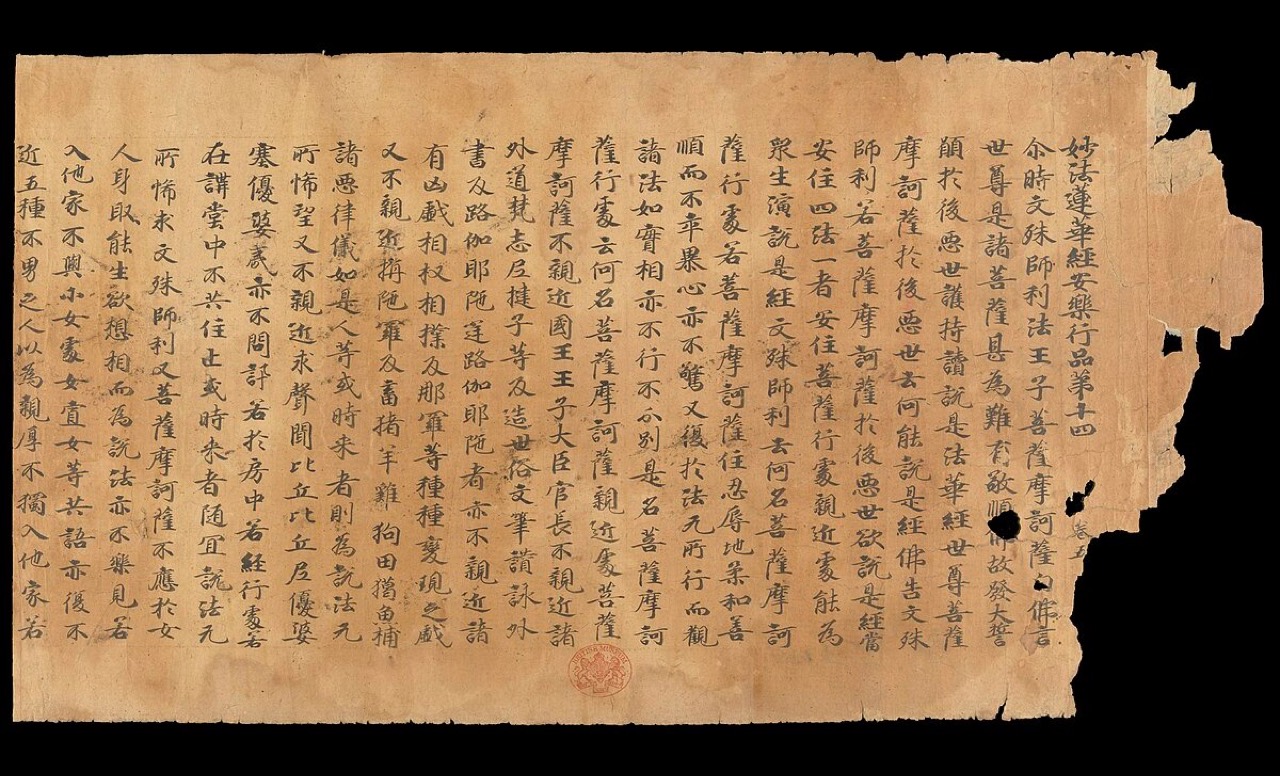 妙法蓮華經安樂行品第十四 卷五
尒時文殊師利法王子菩薩摩訶薩白佛言
世尊是諸菩薩甚為難有敬順佛故發大誓
願於後惡世護持讀說是法華經世尊菩薩
摩訶薩於後惡世云何能說是經佛告文殊
師利若菩薩摩訶薩於後惡世欲說是經當
安住四法一者安住菩薩行處親近處能為
眾生演說是經文殊師利云何名菩薩摩訶
薩行處若菩薩摩訶薩住忍辱地柔和善
順而不卒暴心亦不驚又復於法无所行而觀
諸法如實相亦不行不分別是名菩薩摩訶
薩行處云何名菩薩摩訶薩親近處菩薩
摩訶薩不親近國王王子大臣官長不親近諸
外道梵志尼揵子等及造世俗文筆讚詠外
書及路伽耶陁逆路伽耶陁者亦不親近諸
有凶戲相扠相撲及那羅等種種變現之戲
又不親近旃陁羅及畜猪羊雞狗田獵魚捕
諸惡律儀如是人等或時来者則為說法无
所悕望又不親近求聲聞比丘比丘尼優婆
塞優婆夷亦不問訊若於房中若經行處若
在講堂中不共住止或時来者随宜說法无
所悕求文殊師利又菩薩摩訶薩不應於女
人身取能生欲想相而為說法亦不樂見若
入他家不與小女處女寡女等共語亦復不
近五種不男之人以為親厚不獨入他家若
BRITISH MUSEUM